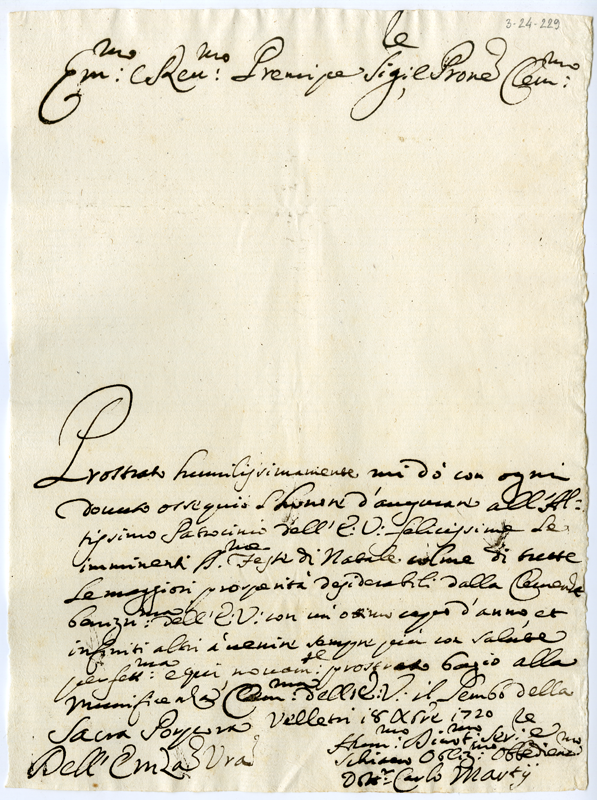 3-24-229
Em:mo e Reu:mo Prencipe Sig:le Prone Clem:mo
Prostrato humilissimamente mi dò con ogni
douuto ossequio l'honore d'augurare all'Al-
tissimo Patrocinio dell'E:V: felicissime le
imminenti S.me Feste di Natale colme di tutte
le maggiori prosperità desiderabili dalla Clementa
dell'E:V: con un'ottimo capo d'anno, et
infiniti altri à uenire sempre più con salute
perfett:ma e qui nouam:te prostrato bagio alla
munificenza Clem:ma dell'E:V: il Lembo della
Sacra Porpora Velletri 18 Xbre 1720
Dell'Emza Vra
Hum:mo Diuot:mo Ser:e
Schiauo Oblig:mo
Dott:r Carlo Martij